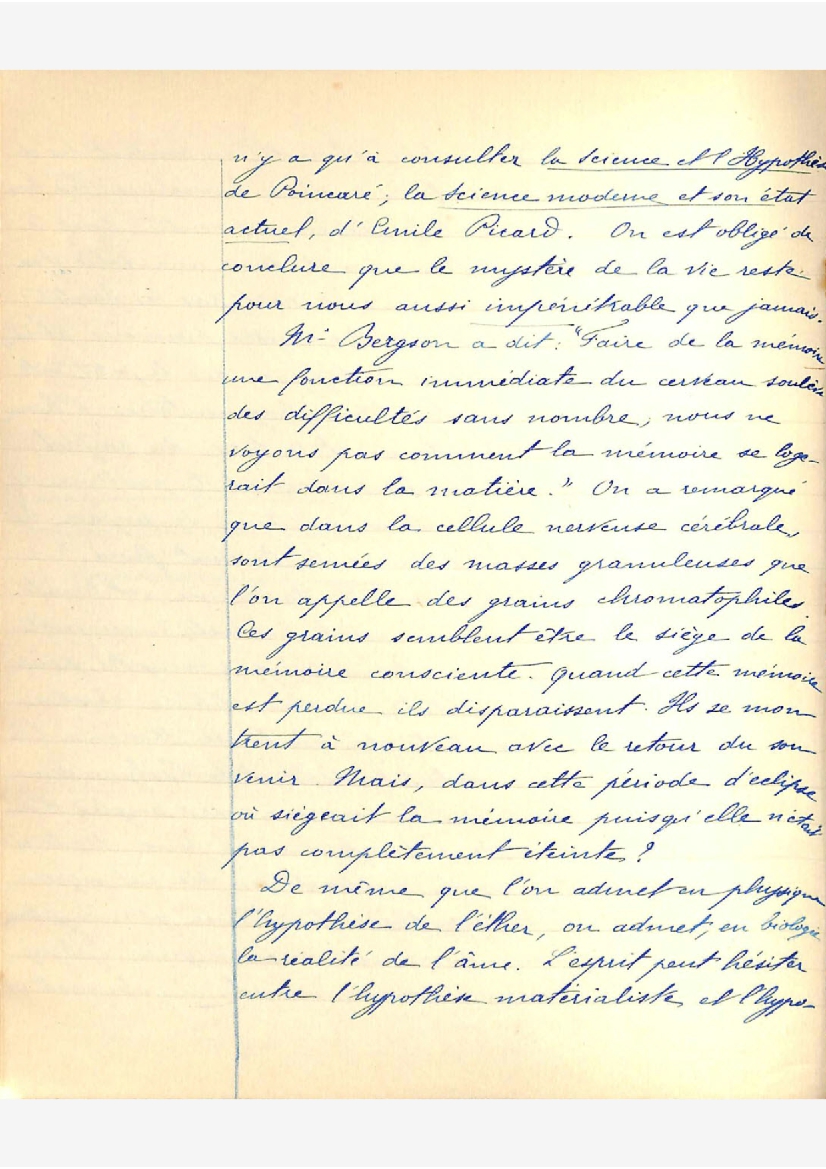 n'y a qu'à consulter la Science et l'Hypothèse
de Poincaré; la Science moderne et son état
actuel, d'Emile Picard. On est obligé de
conclure que le mystère de la vie reste
pour nous aussi impénétrable que jamais.
Mr Bergson a dit: "Faire de la mémoire
une fonction immédiate du cerveau soulève
des difficultés sans nombre, nous ne
voyons pas comment la mémoire se loge-
rait dans la matière." On a remarqué
que dans la cellule nerveuse cérébrale,
sont semées des masses granuleuses que
l'on appelle des grains chromatophiles.
Ces grains semblent être le siège de la
mémoire consciente. Quand cette mémoire
est perdue ils disparaissent. Ils se mon
trent à nouveau avec le retour du sou
venir. Mais, dans cette période d'éclipse
où siégeait la mémoire puisqu'elle n'était
pas complètement éteinte?
De même que l'on admet en physique
l'hypothèse de l'éther, on admet, en biologie
la réalité de l'âme. L'esprit peut hésiter
entre l'hypothèse matérialiste et l'hypo-